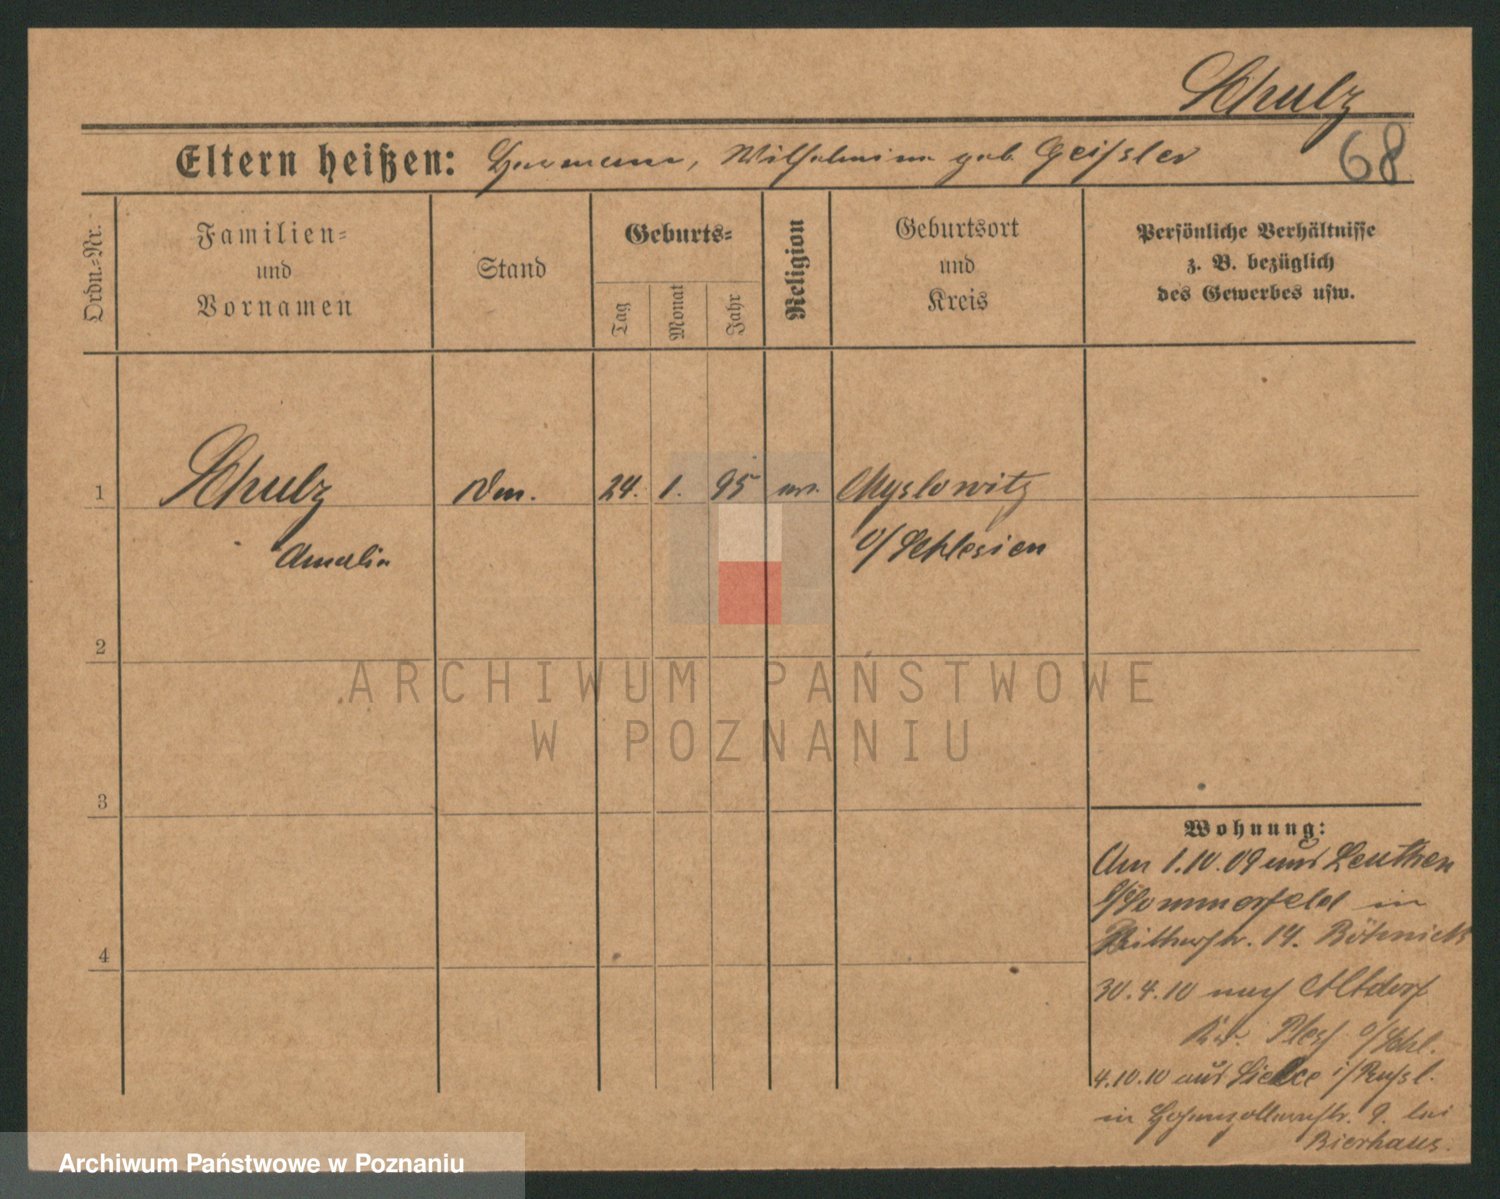 Schulz
68
Eltern heißen: Hermann, Wilhelmine geb. Geissler
Ordn.-Nr.
Familien-
und
Vornamen
Stand
Geburts-
Tag
Monat
Jahr
Religion
Geburtsort
und
Kreis
Persönliche Verhältnisse
z. B. bezüglich
des Gewerbes usw.
1 Schulz 24. 1. 95 Myslowitz
Amalie O/Schlesien
2
ARCHIWUM PAŃSTWOWE
W POZNANIU
3
Wohnung:
Am 1.10.09 aus Leuthen
Sommerfeld in
14.
4
30.4.10 nach Altdorf
Kr. Pless O/Schl.
4.10.10 aus Sielce i/Russl.
in Hohenzollernstr. 9. bei
Bierhaus.
Archiwum Państwowe w Poznaniu